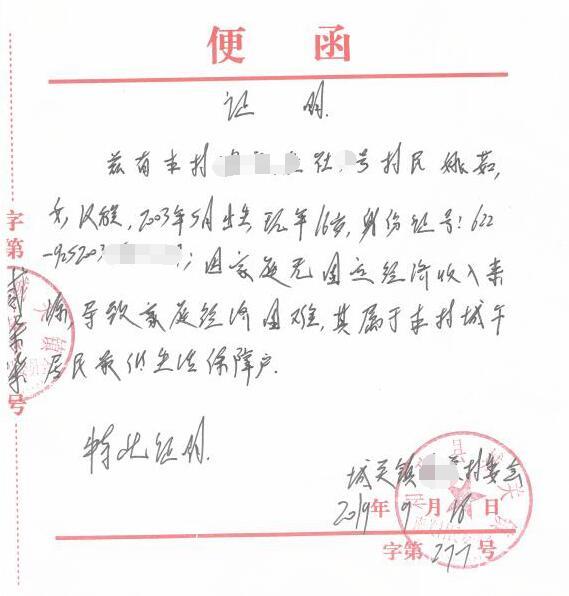 便函
证明
兹有本村 社 号村民姚茹,
女,汉族,2003年5月出生,现年16岁,身份证号:622
9252003 ;因家庭无固定经济收入来
源,导致家庭经济困难,其属于本村城乡
居民最低生活保障户.
特此证明.
城关镇 村委会
2019年9月16日
字第277号
字第 号